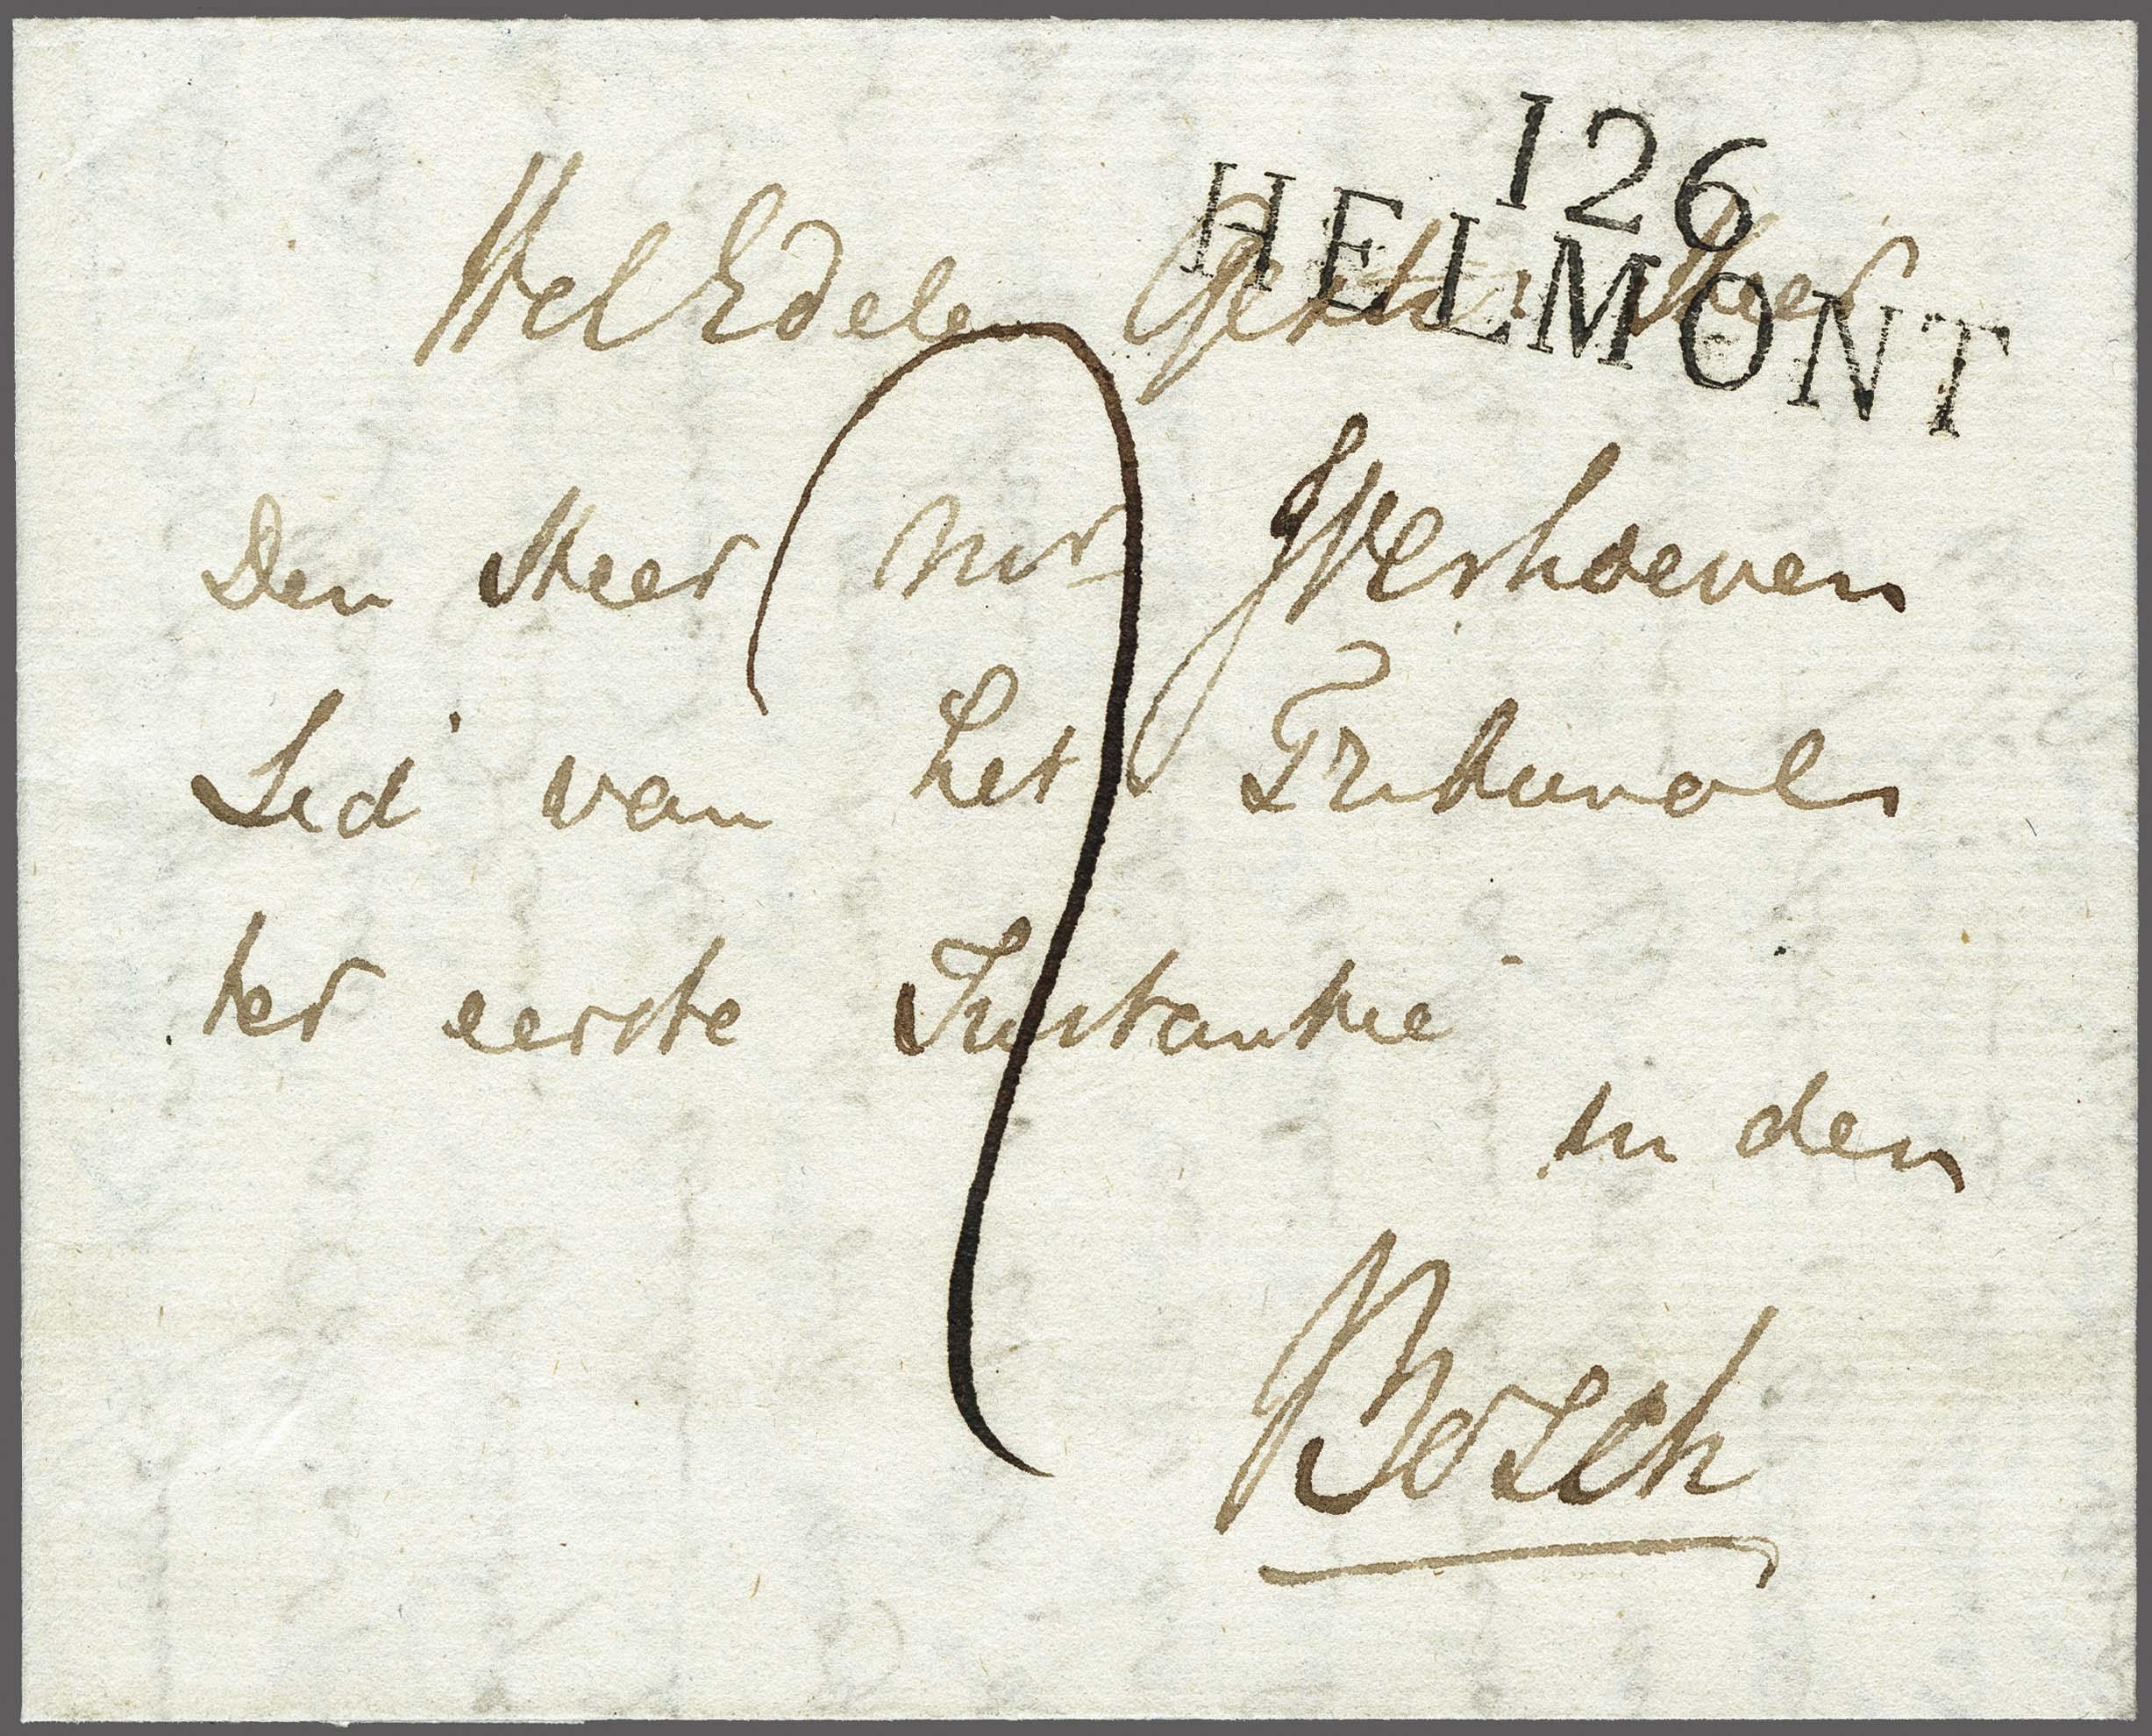 126
HELMONT
Wel Edelen Heer
Den Heer Mr Verhoeven
Lid van het Tribunaal
ter eerste Instantie
in den
Bosch